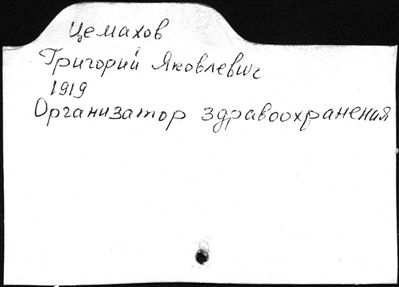 Цемахов
Григорий Яковлевич
1919
Организатор здравоохранения